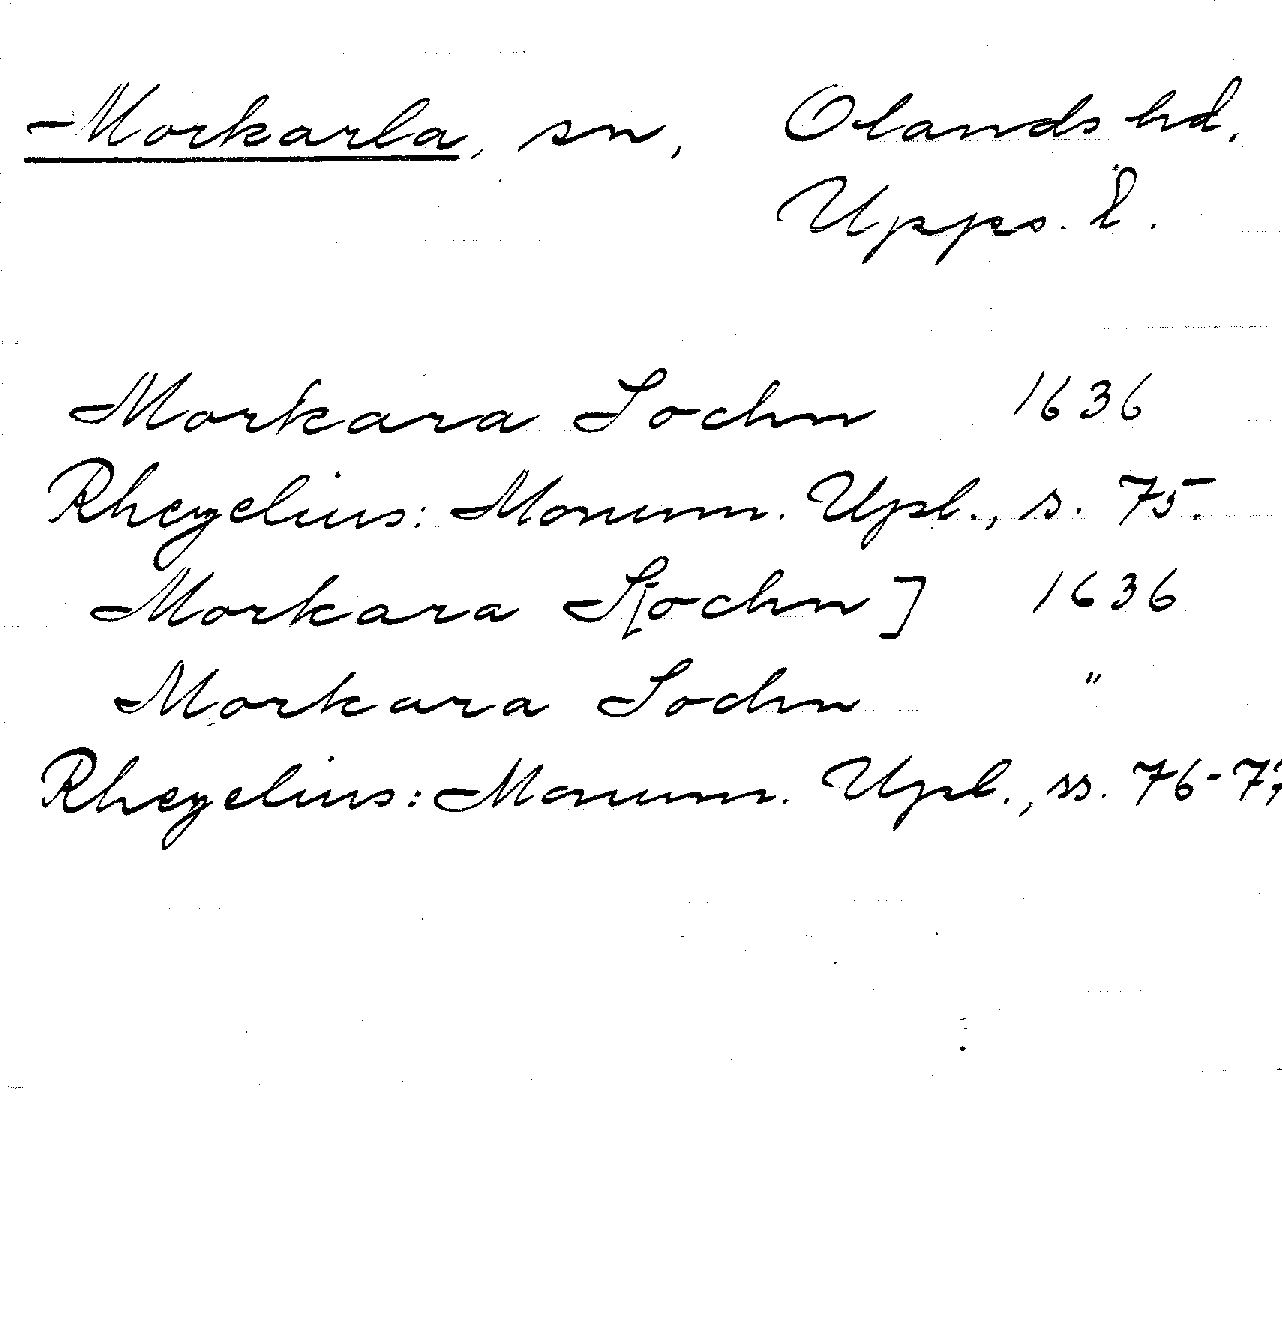 Morkarla, sn, Olands hd,
Upps. l.
Morkara Sochn 1636
Rhezelius: Monum. Upl., s. 75.
Morkara S[ochn] 1636
Morkara Sochn "
Rhezelius: Monum. Upl., ss. 76-77